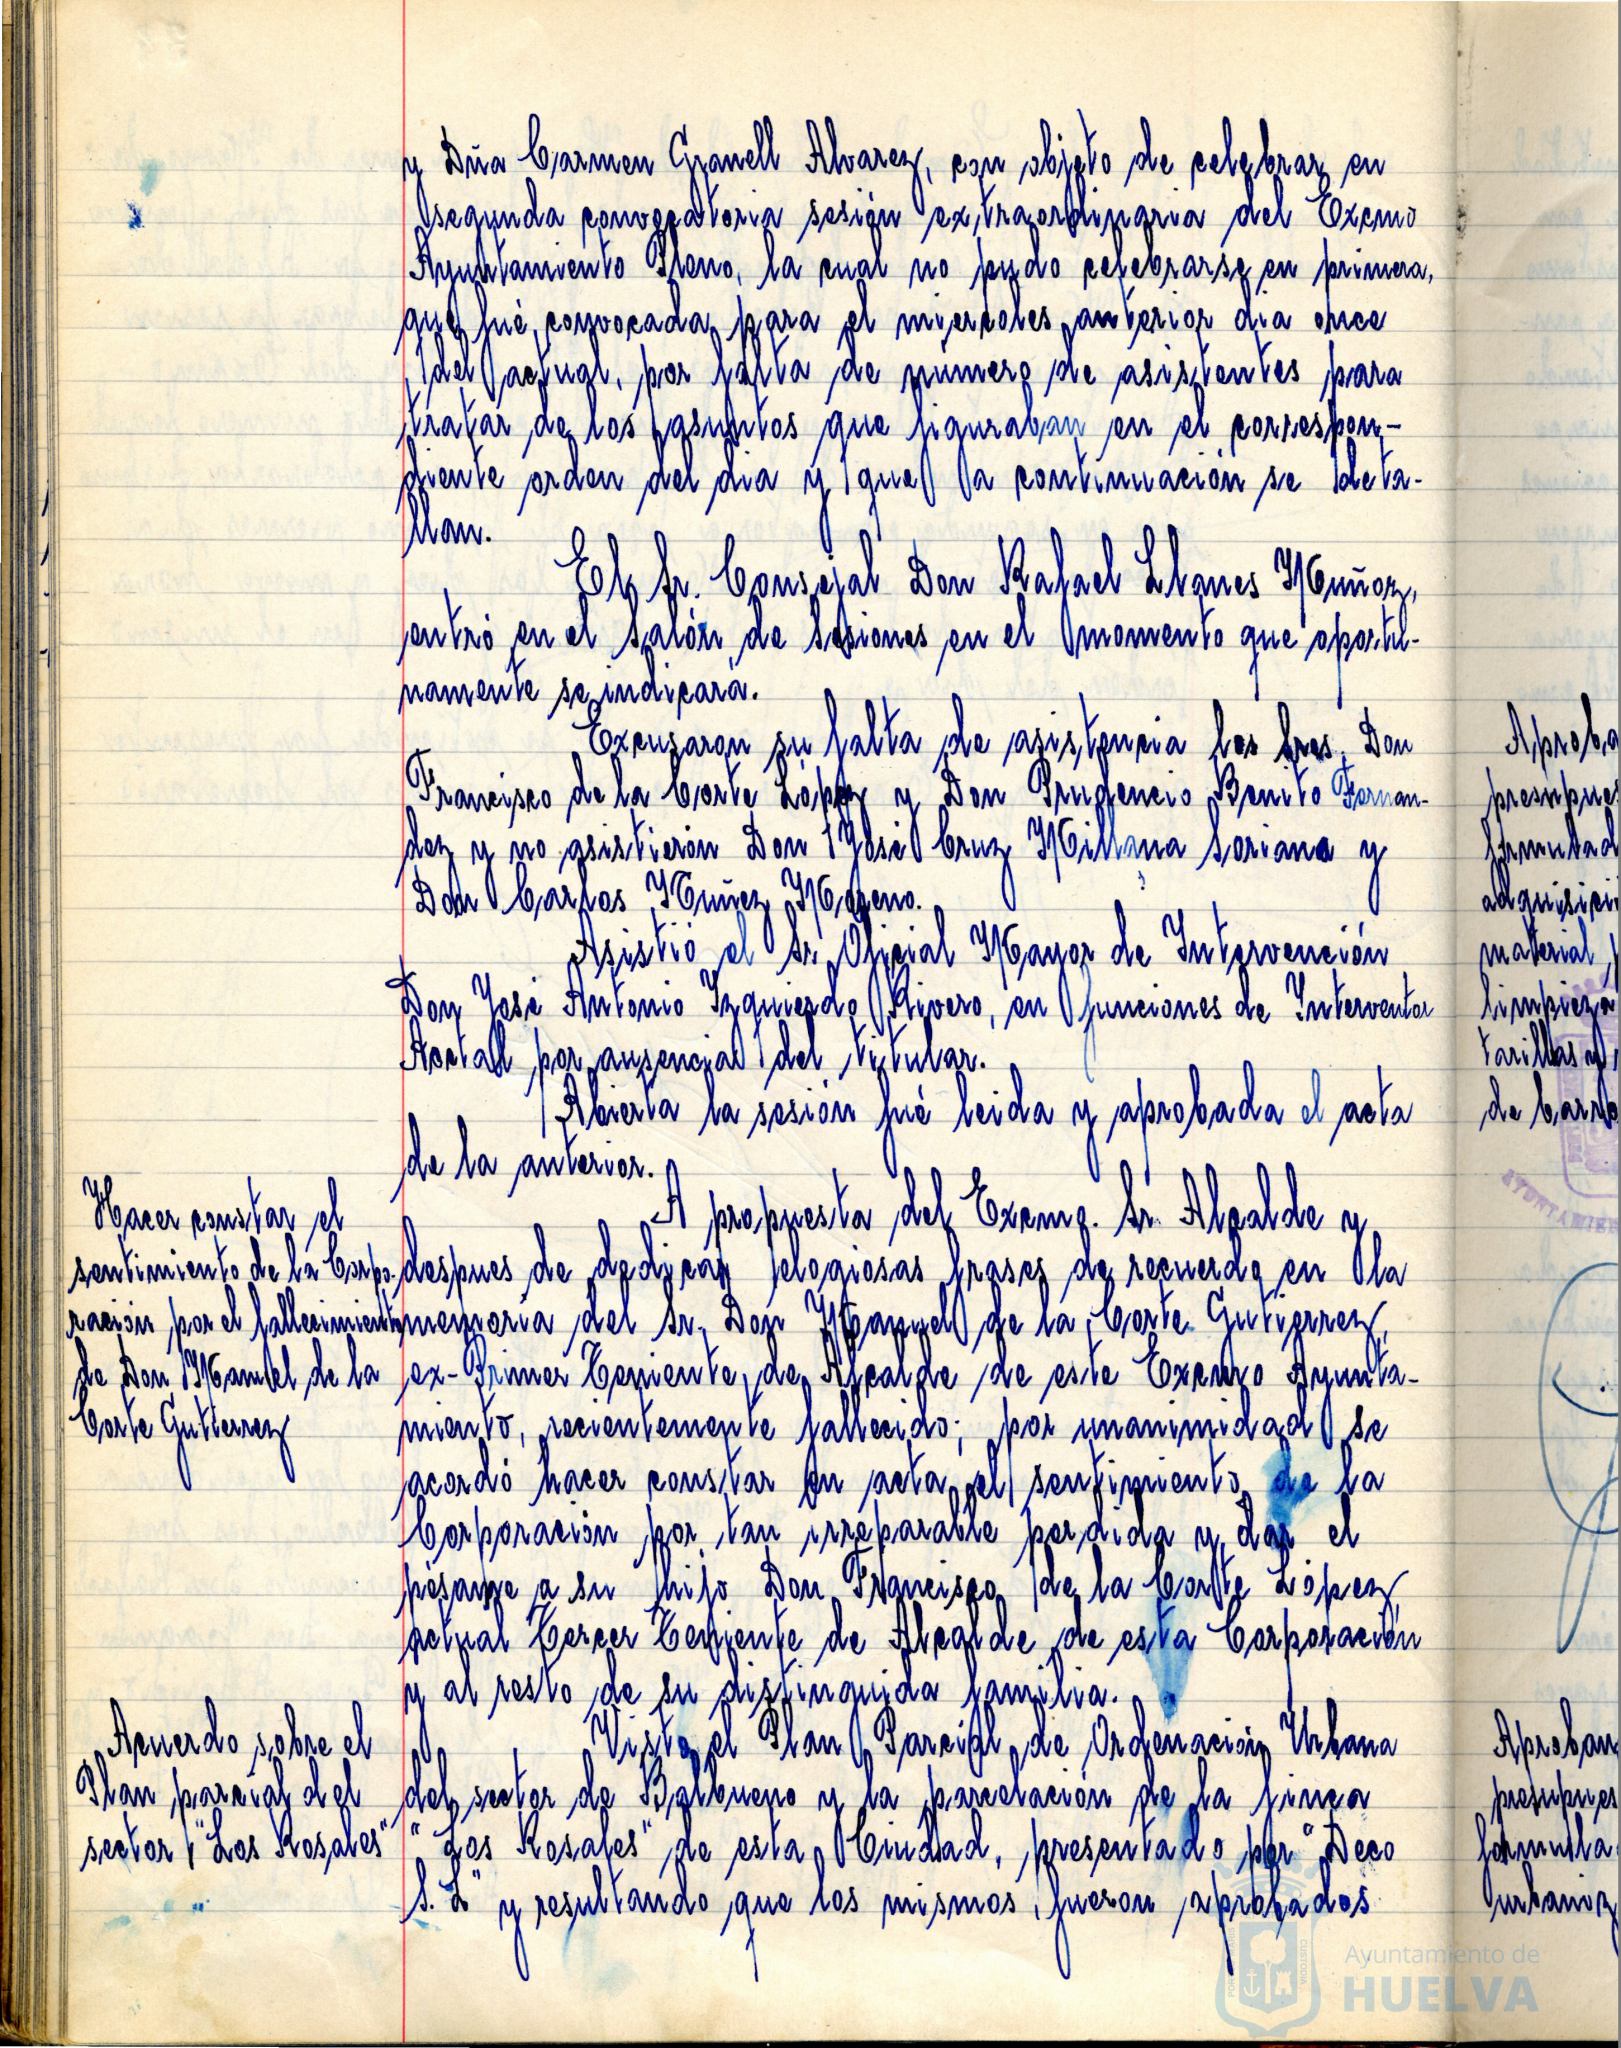 y Dña Carmen Granell Alvarez, con objeto de celebrar en
segunda convocatoria sesión extraordinaria del Excmo
Ayuntamiento Pleno, la cual no pudo celebrarse en primera,
que fué convocada para el miercoles anterior dia once
del actual, por falta de número de asistentes para
tratar de los asuntos que figuraban en el correspon-
diente orden del dia y que a continuación se deta-
llan.
El Sr. Consejal Don Rafael Llanes Muñoz,
entró en el salón de sesiones en el momento que oportu-
namente se indicará.
Excusaron su falta de asistencia los Sres. Don
Francisco de la Corte López y Don Prudencio Benito Fernan-
dez y no asistierón Don José Cruz Millana Soriano y
Don Carlos Muñez Moreno.
Asistió el Sr. Oficial Mayor de Intervención
Don José Antonio Izquierdo Rivero, en funciones de Interventor
Acctal por ausencia del titular.
Abierta la sesión fué leida y aprobada el acta
de la anterior.
Hacer constar el
sentimiento de la Corpo-
ración por el fallecimiento
de Don Manuel de la
Corte Gutierrez
A propuesta del Excmo. Sr. Alcalde y
despues de dedicar elogiosas frases de recuerdo en la
memoria del Sr. Don Manuel de la Corte Gutierrez,
ex-Primer Teniente de Alcalde de este Excmo Ayunta-
miento, recientemente fallecido; por unanimidad se
acordó hacer constar en acta el sentimiento de la
Corporación por tan irreparable perdida y dar el
pésame a su hijo Don Francisco de la Corte López,
actual Tercer Teniente de Alcalde de esta Corporación
y al resto de su distinguida familia.
Acuerdo sobre el
Plan parcial del
sector "Los Rosales"
Visto el Plan Parcial de Ordenación Urbana
del sector de Balbueno y la parcelación de la finca
"Los Rosales" de esta Ciudad, presentado por "Deco
S.L" y resultando que los mismos fueron aprobados
Aproba
presupue
formulad
adquisici
material
limpieza
tarillas y
de barro
AYUNTAMIEN
Aproban
presupues
formula
urbaniz
Ayuntamiento de
HUELVA